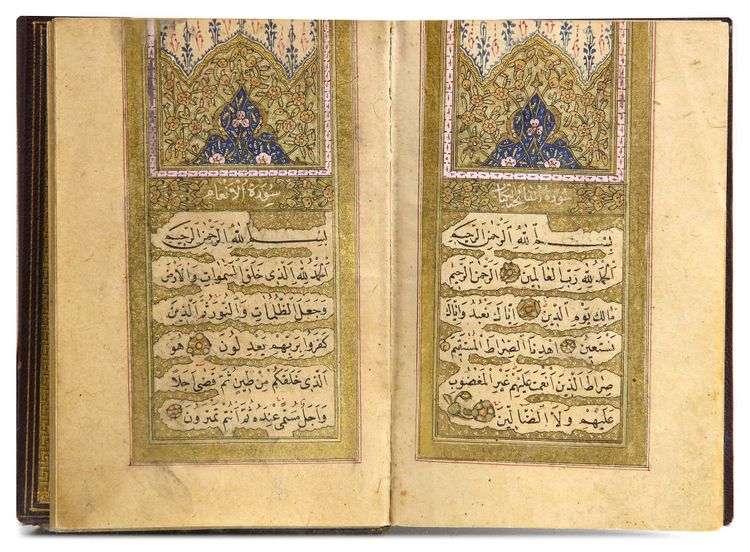 سورة الفاتحة
بسم الله الرحمن الرحيم
الحمد لله رب العالمين الرحمن الرحيم
مالك يوم الدين اياك نعبد واياك
نستعين اهدنا الصراط المستقيم
صراط الذين انعمت عليهم غير المغضوب
عليهم ولا الضالين
سورة الانعام
بسم الله الرحمن الرحيم
الحمد لله الذي خلق السموات والارض
وجعل الظلمات والنور ثم الذين
كفروا بربهم يعدلون هو
الذي خلقكم من طين ثم قضى اجلا
واجل مسمى عنده ثم انتم تمترون